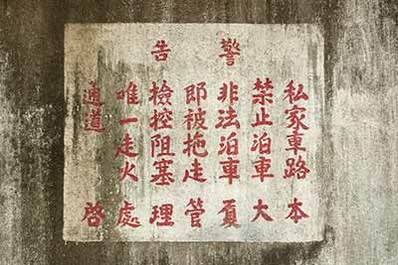 警告
私家車路
禁止泊車
非法泊車
即被拖走
檢控阻塞
唯一走火
通道
本大厦管理處啓